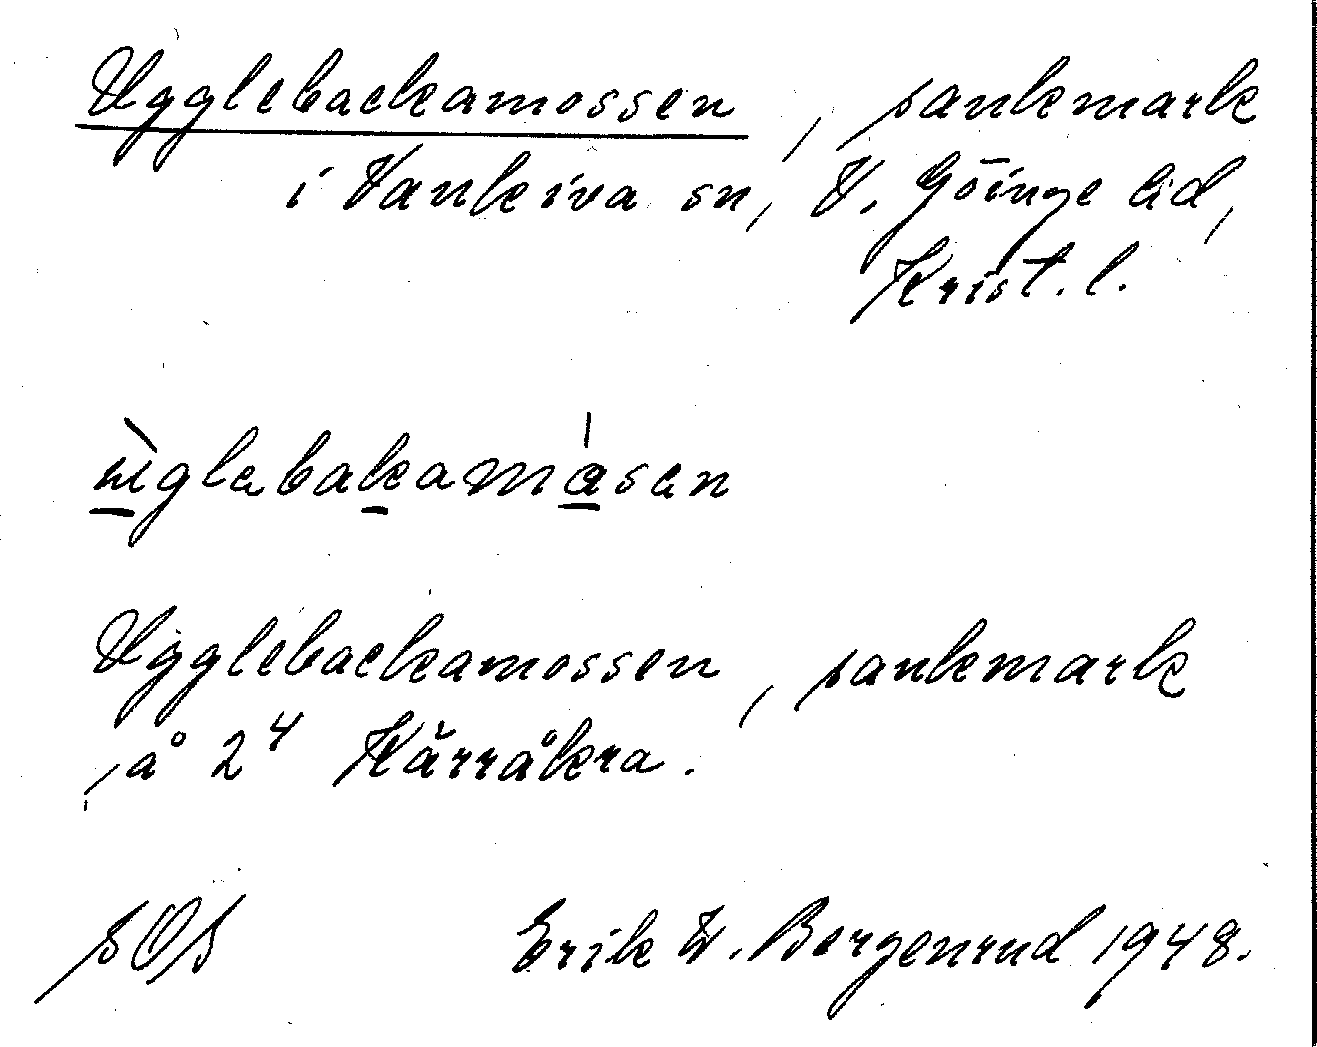 Ugglebackamossen, sankmark
i Vankiva sn, V. Göinge hd,
Krist. l.
Ugglebackamossen, sankmark
å 2⁴ Kärråkra.
SOS Erik W. Bergenrud 1948.